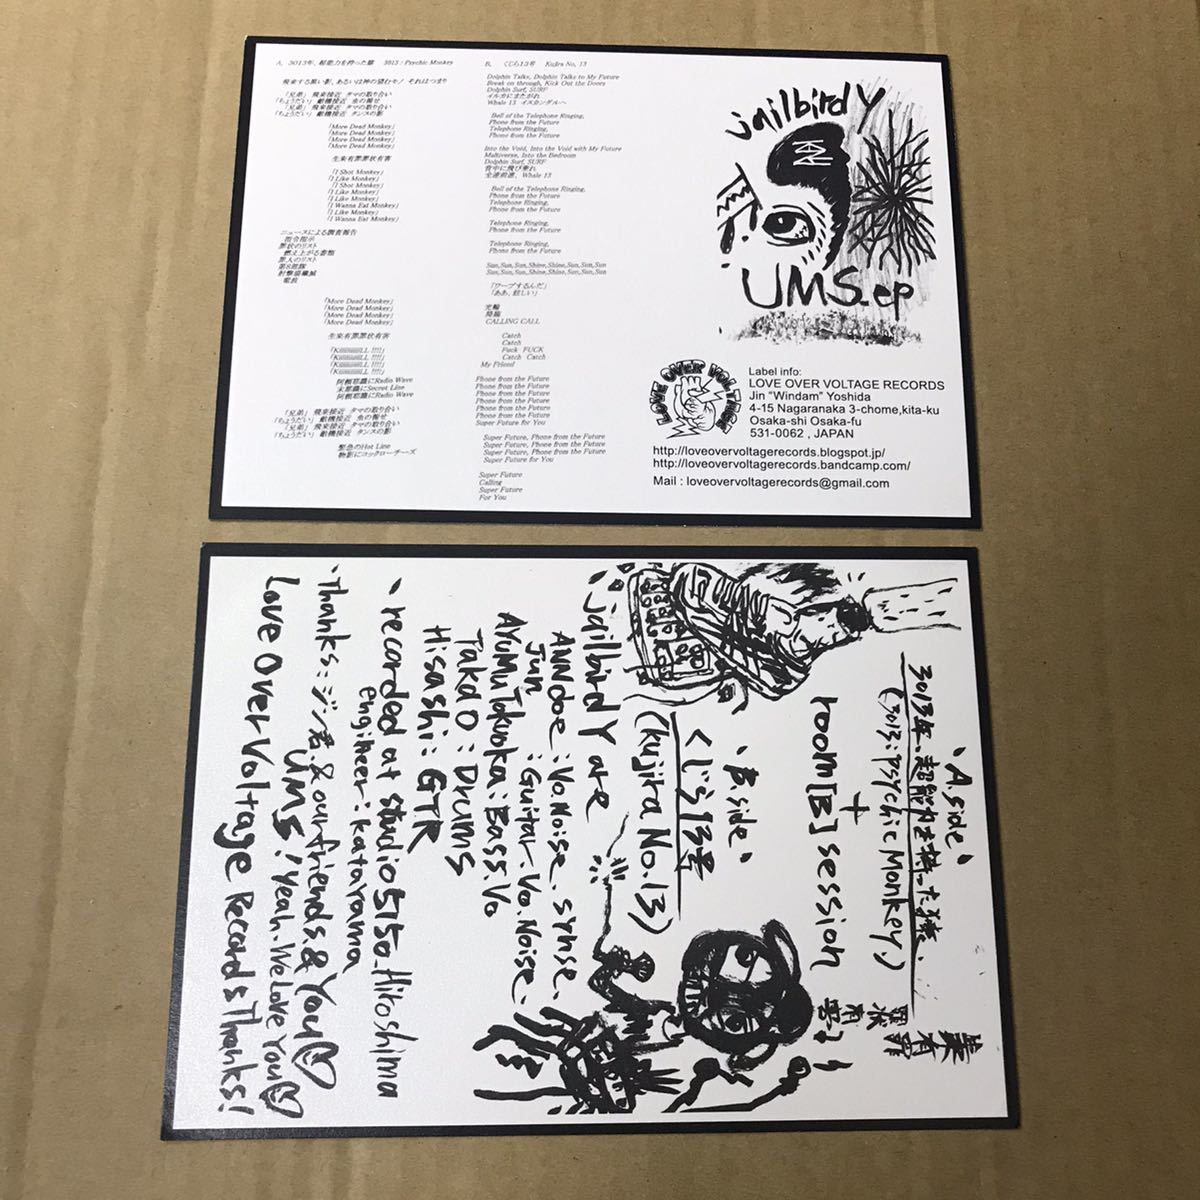 A. 3013年、超能力を持った猿　3013 : Psychic Monkey
飛来する黒い影、あるいは神の望むモノ それはつまり
「兄弟」 飛来接近 タマの取り合い
「ちょうだい」 敵機接近 虫の報せ
「兄弟」 飛来接近 タマの取り合い
「ちょうだい」 敵機接近 タンスの影
「More Dead Monkey」
「More Dead Monkey」
「More Dead Monkey」
「More Dead Monkey」
生来有罪罪状有害
「I Shot Monkey」
「I Like Monkey」
「I Shot Monkey」
「I Like Monkey」
「I Like Monkey」
「I Wanna Eat Monkey」
「I Like Monkey」
「I Wanna Eat Monkey」
ニュースによる調査報告
指令指示
罪状のリスト
燃え上がる書類
罪人のリスト
第8艦隊
射撃殲滅
「More Dead Monkey」
「More Dead Monkey」
「More Dead Monkey」
「More Dead Monkey」
生来有罪罪状有害
阿頼耶識にRadio Wave
末那識にSecret Line
阿頼耶識にRadio Wave
「兄弟」 飛来接近 タマの取り合い
「ちょうだい」 敵機接近 虫の報せ
「兄弟」 飛来接近 タマの取り合い
「ちょうだい」 敵機接近 タンスの影
紫色のHot Line
物影にコックローチーズ
B. くじら13号　Kujira No, 13
Dolphin Talks, Dolphin Talks to My Future
Break on through, Kick Out the Doors
Dolphin Surf, SURF
イルカにまたがれ
Whale 13 イスカンダルへ
Bell of the Telephone Ringing,
Phone from the Future
Telephone Ringing,
Phone from the Future
Into the Void, Into the Void with My Future
Maltiverse, Into the Bedroom
Dolphin Surf, SURF
背中に飛び乗れ
全速前進、Whale 13
Bell of the Telephone Ringing,
Phone from the Future
Telephone Ringing,
Phone from the Future
Telephone Ringing,
Phone from the Future
Telephone Ringing,
Phone from the Future
Sun,Sun,Sun,Shine,Shine,Sun,Sun,Sun
Sun,Sun,Sun,Shine,Shine,Sun,Sun,Sun
「ワープするんだ」
「ああ、眩しい」
光輪
降臨
CALLING CALL
Catch
Catch
Fuck FUCK
Catch Catch
My Friend
Phone from the Future
Phone from the Future
Phone from the Future
Phone from the Future
Phone from the Future
Phone from the Future
Super Future for You
Super Future, Phone from the Future
Super Future, Phone from the Future
Super Future, Phone from the Future
Super Future for You
Super Future
Calling
Super Future
For You
jailbird Y
UMS.ep
LOVE OVER VOLTAGE
Label info:
LOVE OVER VOLTAGE RECORDS
Jin "Windam" Yoshida
4-15 Nagaranaka 3-chome,kita-ku
Osaka-shi Osaka-fu
531-0062 , JAPAN
http://loveovervoltagerecords.blogspot.jp/
http://loveovervoltagerecords.bandcamp.com/
Mail : loveovervoltagerecords@gmail.com
、A.side、
3013年、超能力を持った猿、
(3013: psychic Monkey)
+
room[B]session
、B.side、
くじら13号
(kujira No.13)
生来有罪
罪状有害
、jailbird Y are
ANNdoe : Vo.Noise.synse.
Jun : Guitar.Vo.Noise.
AyuMu Tokuoka : Bass.Vo
TakaO : Drums
Hisashi : GTR
、recorded at studio5150_Hiroshima
engineer : katayama
、Thanks : ジン君.&ourfriends.&You♡
UMS! Yeah. We Love You♡
Love Over Voltage Records Thanks!